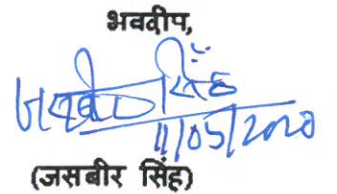 भवदीप,
जसबीर सिंह
11/05/2020
(जसबीर सिंह)